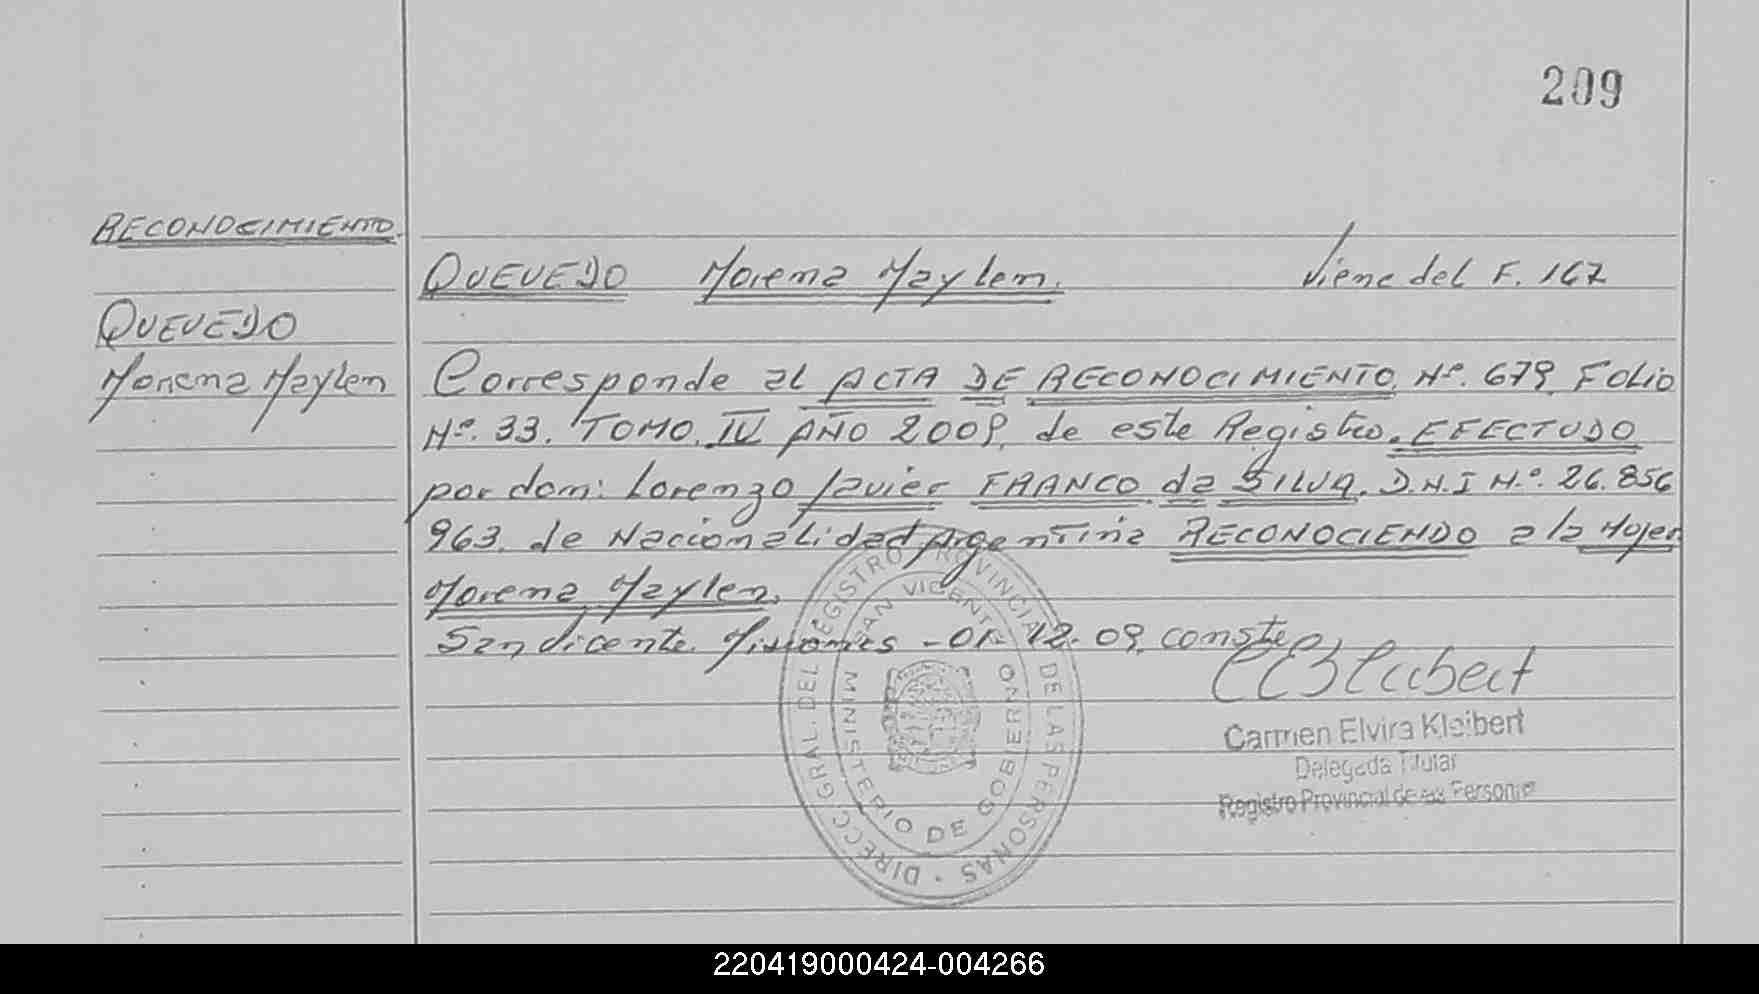 209
RECONOCIMIENTO.
QUEVEDO Morena Maylen. Viene del F. 167
QUEVEDO
Morena Maylen
Corresponde al ACTA DE RECONOCIMIENTO. Nº. 679. FOLIO
Nº. 33. TOMO. IV AÑO 2009. de este Registro. EFECTUDO
por don: Lorenzo Javier FRANCO da SILVA. D.N.I Nº. 26.856
963. de Nacionalidad Argentina RECONOCIENDO a la Mujer
Morena Maylen.
San Vicente. Misiones - 01 - 12. 09. conste
CEKleibert
Carmen Elvira Kleibert
Delegada Titular
Registro Provincial de las Personas
DIRECC. GRAL. DEL REGISTRO PROVINCIAL DE LAS PERSONAS
SAN VICENTE
MINISTERIO DE GOBIERNO
220419000424-004266